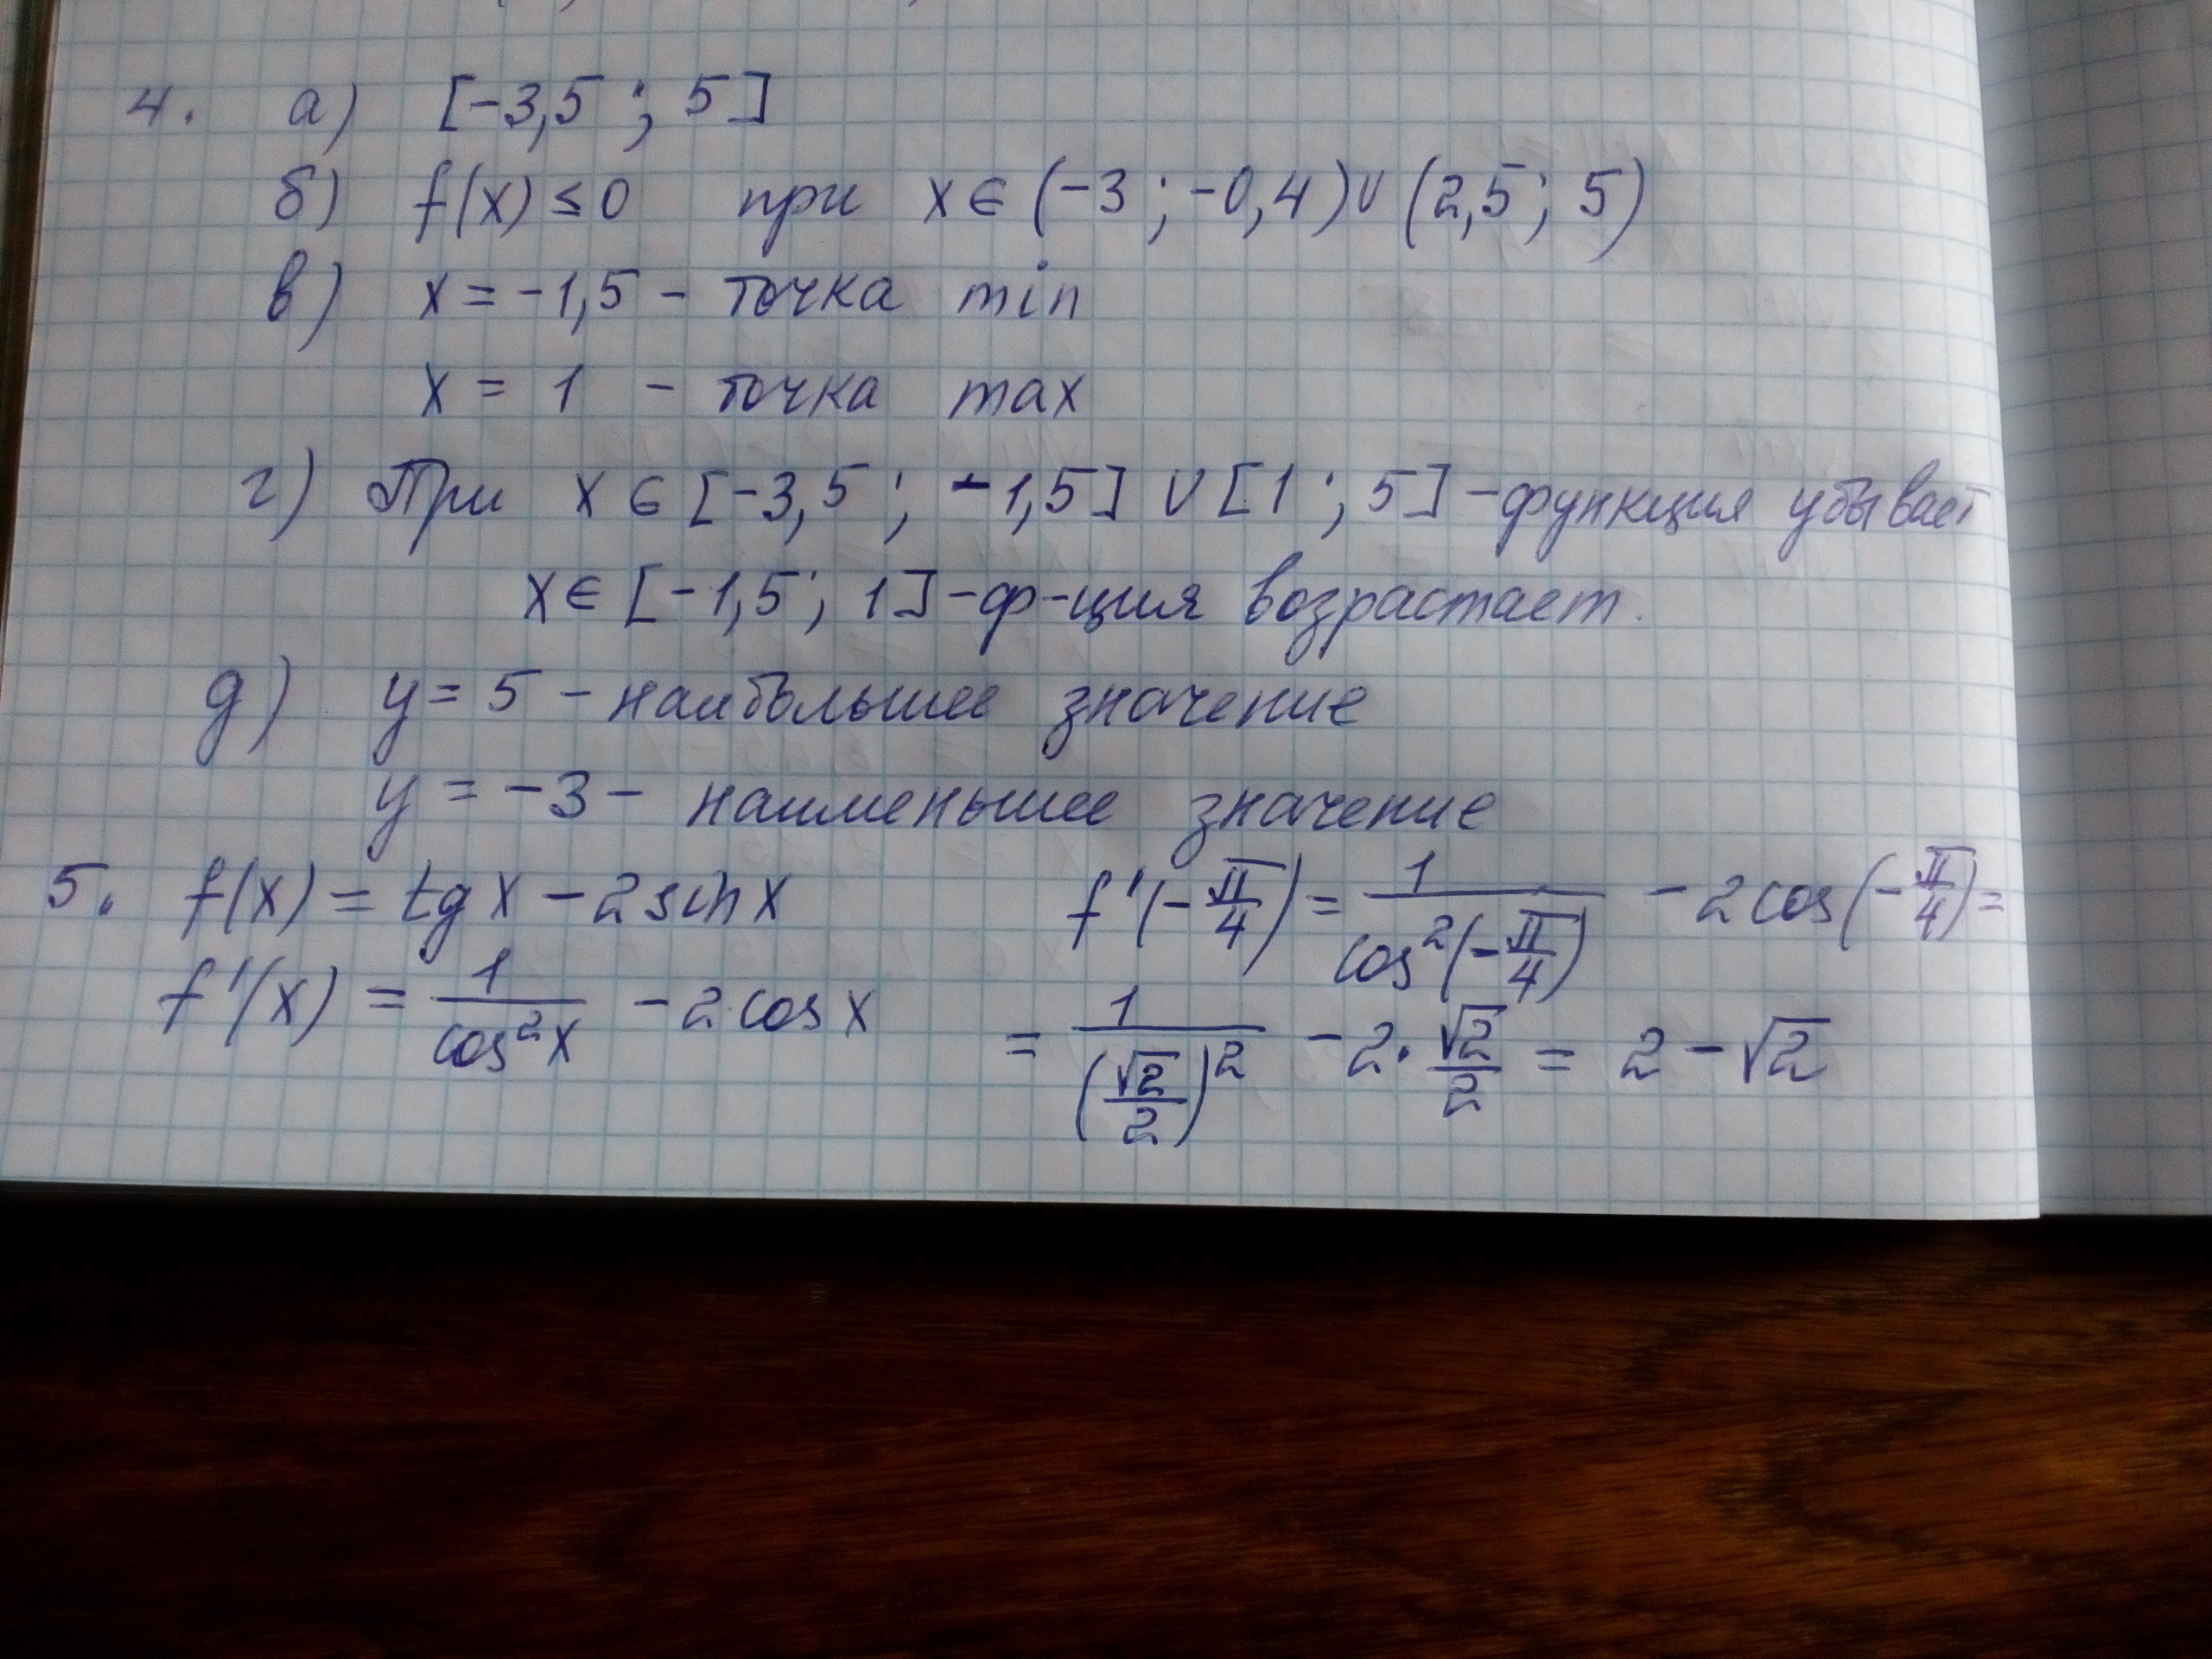 4. а) [-3,5 ; 5]
б) f(x) ≤ 0 при x ∈ (-3 ; -0,4) ∪ (2,5 ; 5)
в) x = -1,5 - точка min
x = 1 - точка max
г) При x ∈ [-3,5 ; -1,5] ∪ [1 ; 5] - функция убывает
x ∈ [-1,5 ; 1] - ф-ция возрастает.
д) y = 5 - наибольшее значение
y = -3 - наименьшее значение
5. f(x) = tg x - 2 sin x
f'(x) = 1/cos²x - 2 cos x
f'(-π/4) = 1/cos²(-π/4) - 2 cos(-π/4) =
= 1/(√2/2)² - 2·√2/2 = 2 - √2